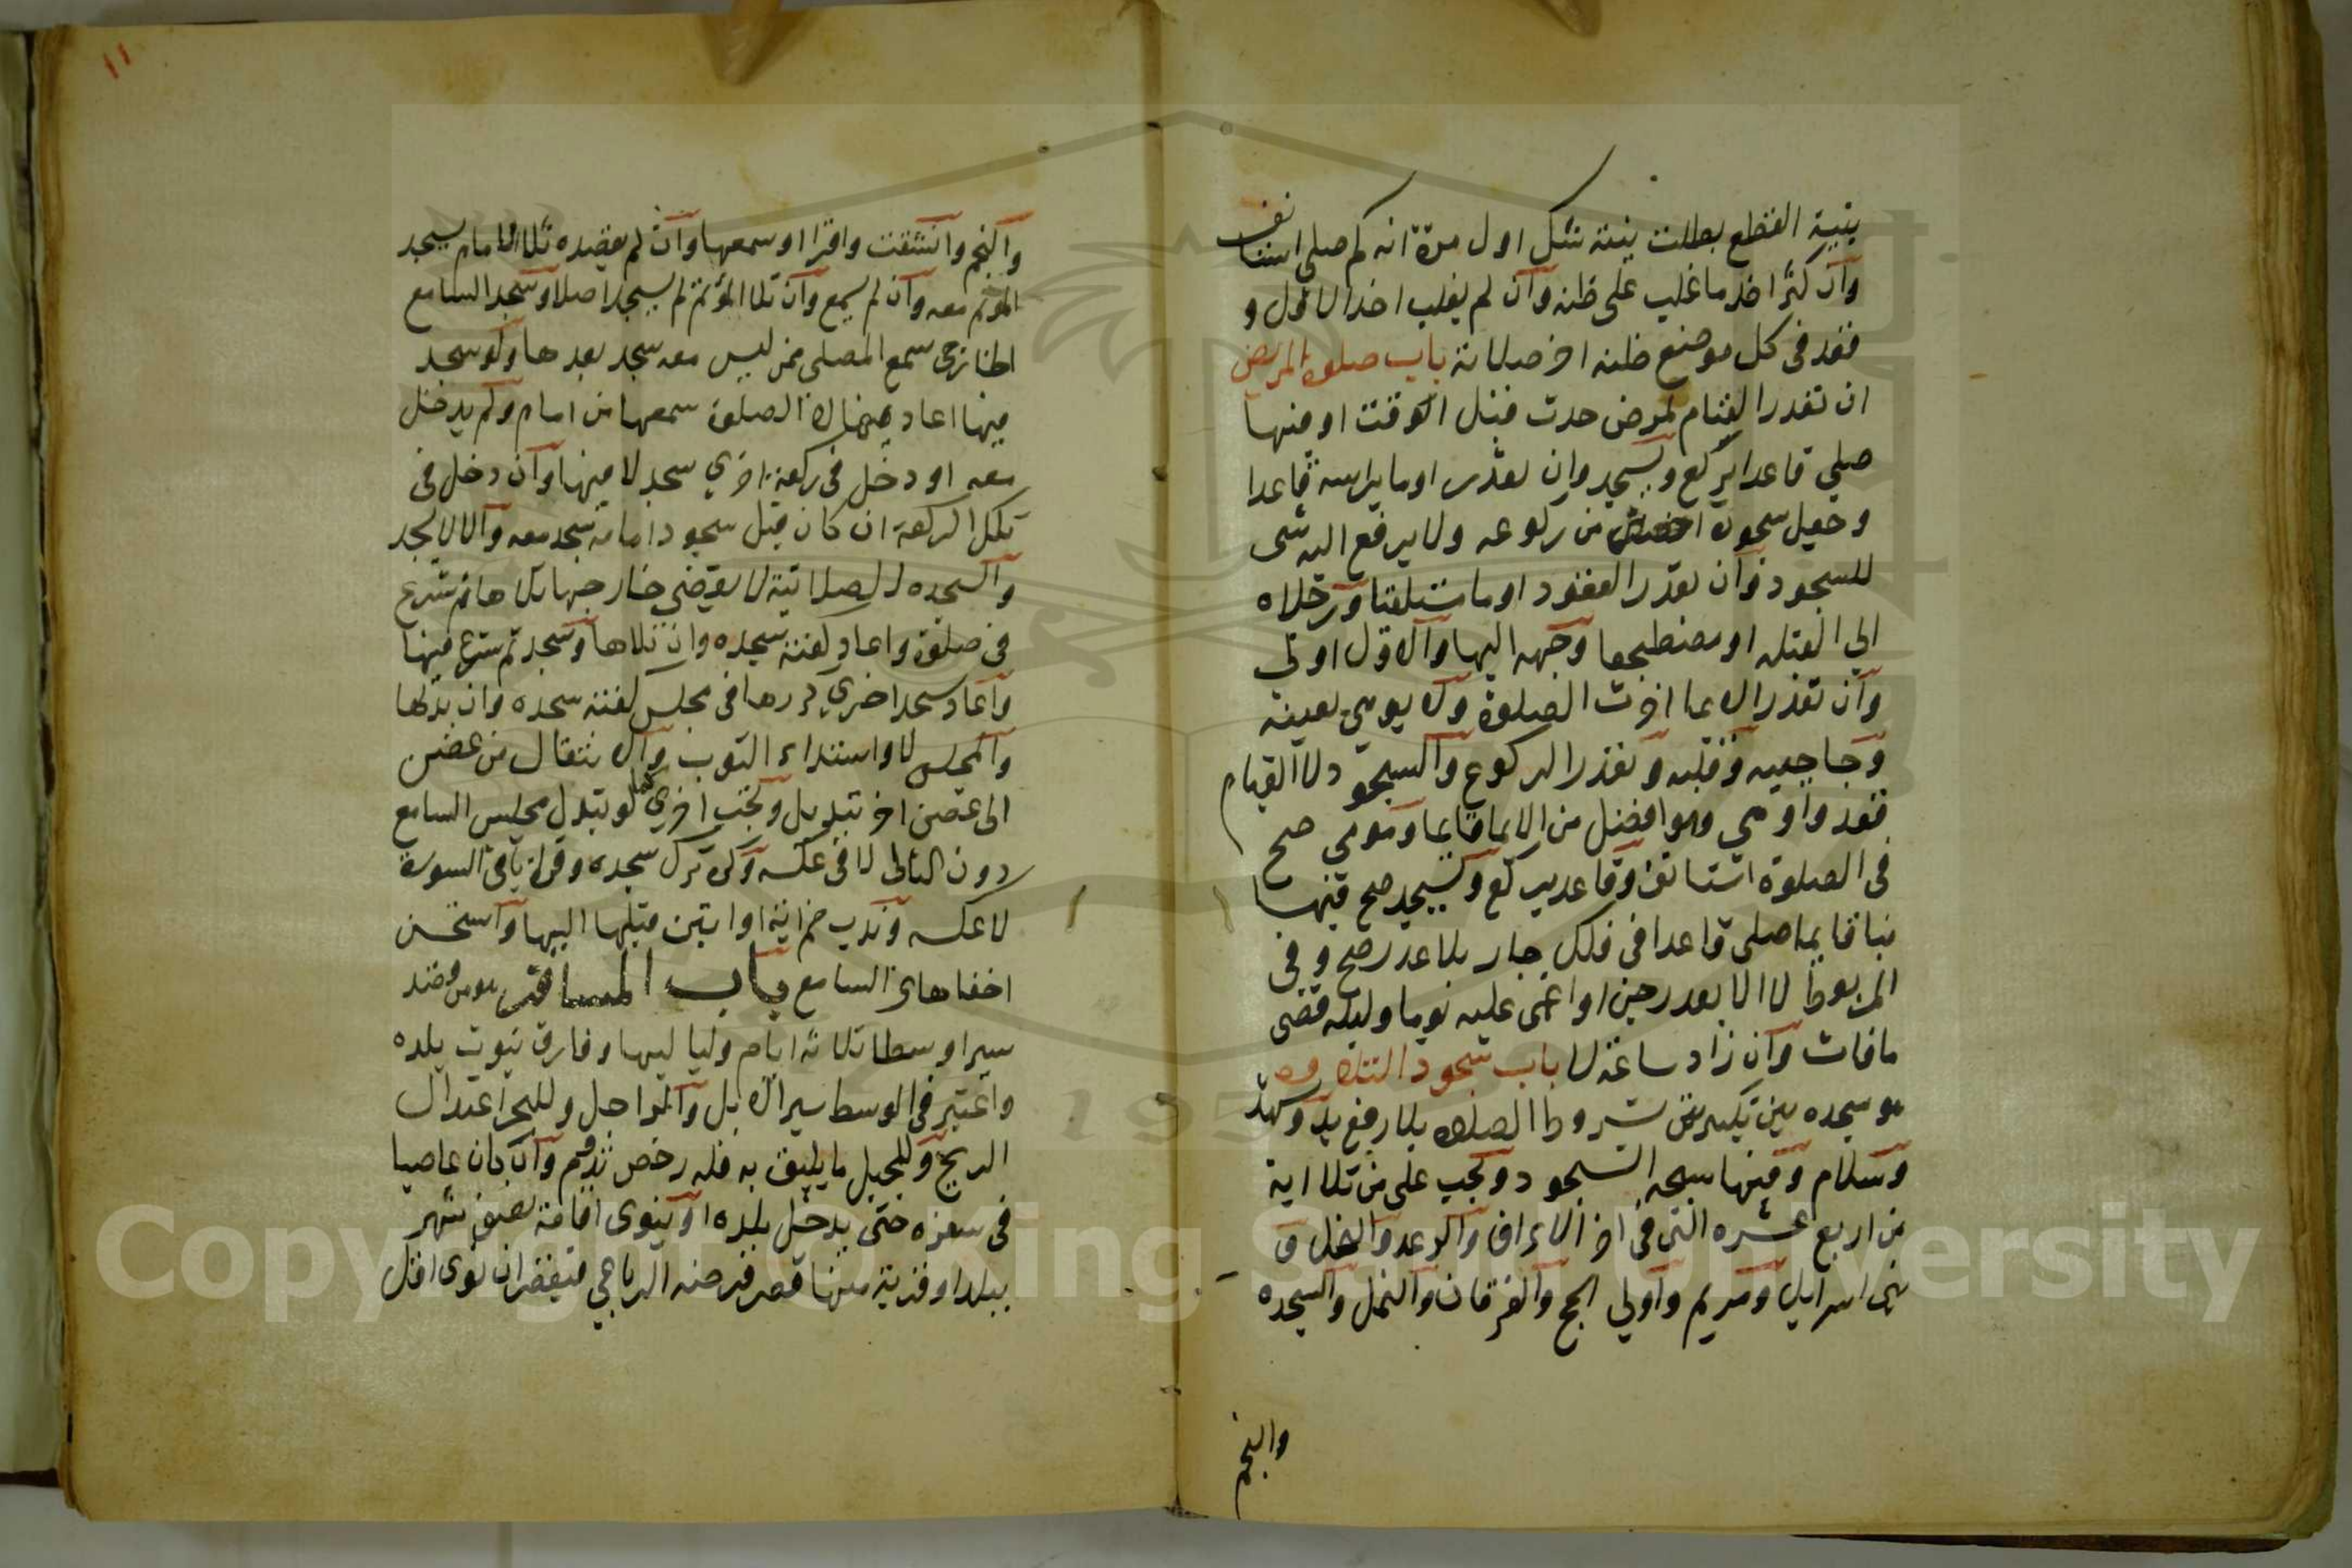 بنية القطع بطلت بنية شك اول مرة انه كم صلى استانف
وان كثر اخذ ما غلب على ظنه وان لم يغلب اخذ الاقل و
قعد في كل موضع ظنه اخر صلاته باب صلوة المريض
ان تعذر القيام لمرض حدث قبل الوقت او فيها
صلى قاعدا يركع ويسجد وان تعذر اوما براسه قاعدا
وجعل سجوده اخفض من ركوعه ولا يرفع اليه شى
للسجود وان تعذر القعود اوما مستلقيا ورجلاه
الى القبله او مضطجعا وجهه اليها والاول اولى
وان تعذر الايما اخرت الصلوة ولا يومى بعينه
وحاجبيه وقلبه وتعذر الركوع والسجود لا القيام
قعد واومى وهو افضل من الايما قايما ومومى صح
فى الصلوة استانف وقاعد يركع ويسجد صح فيها
بنا قايما صلى قاعدا فى فلك جار بلا عذر صح وفى
المربوط لا الا بعذر جن او اغمى عليه يوما وليله قضى
مافات وان زاد ساعة لا باب سجود التلاوه
هو سجده بين تكبيرتين بشروط الصلاه بلا رفع يد وتشهد
وسلام وفيها سبحه السجود وتجب على من تلا اية
من اربع عشره التى فى اخر الاعراف والرعد والنحل و
بنى اسرايل ومريم واولى الحج والفرقان والنمل والسجده
والنجم
١١
والنجم وانشقت واقرا او سمعها وان لم يقصده تلا الامام سجد
المؤتم معه وان لم يسمع وان تلا المؤتم لم يسجد اصلا وسجد السامع
الخارجى سمع المصلى ممن ليس معه سجد بعدها ولو سجد
فيها اعادها لا الصلوة سمعها من امام ولم يدخل
معه او دخل فى ركعة اخرى سجد لا فيها وان دخل فى
تلك الركعة ان كان قبل سجود امامه سجد معه والا لا يسجد
والسجده الصلاتية لا تقضى خارجها تلاها ثم شرع
فى صلوة واعاد كفته سجده وان تلاها وسجد ثم شرع فيها
واعاد سجد اخرى كررها فى مجلس كفته سجده وان بدلها
والمجلس لا واستداء الثوب والانتقال من غصن
الى غصن اخر تبديل وتجب اخرى لو تبدل مجلس السامع
دون التالى لا فى عكسه وكره ترك سجده وقراة باقى السورة
لا عكسه وندب ضم اية او ايتين قبلها اليها واستحسن
اخفاها عن السامع باب المسافر هو من قصد
سيرا وسطا ثلاثة ايام ولياليها وفارق بيوت بلده
واعتبر فى الوسط سير الابل والراجل وللبحر اعتدال
الريح وللجبل ما يليق به فله رخص تدوم وان كان عاصيا
فى سفره حتى يدخل بلده او ينوى اقامة نصف شهر
ببلد او قرية منها قصر فرضه الرباعى فيقصر ان نوى اقل